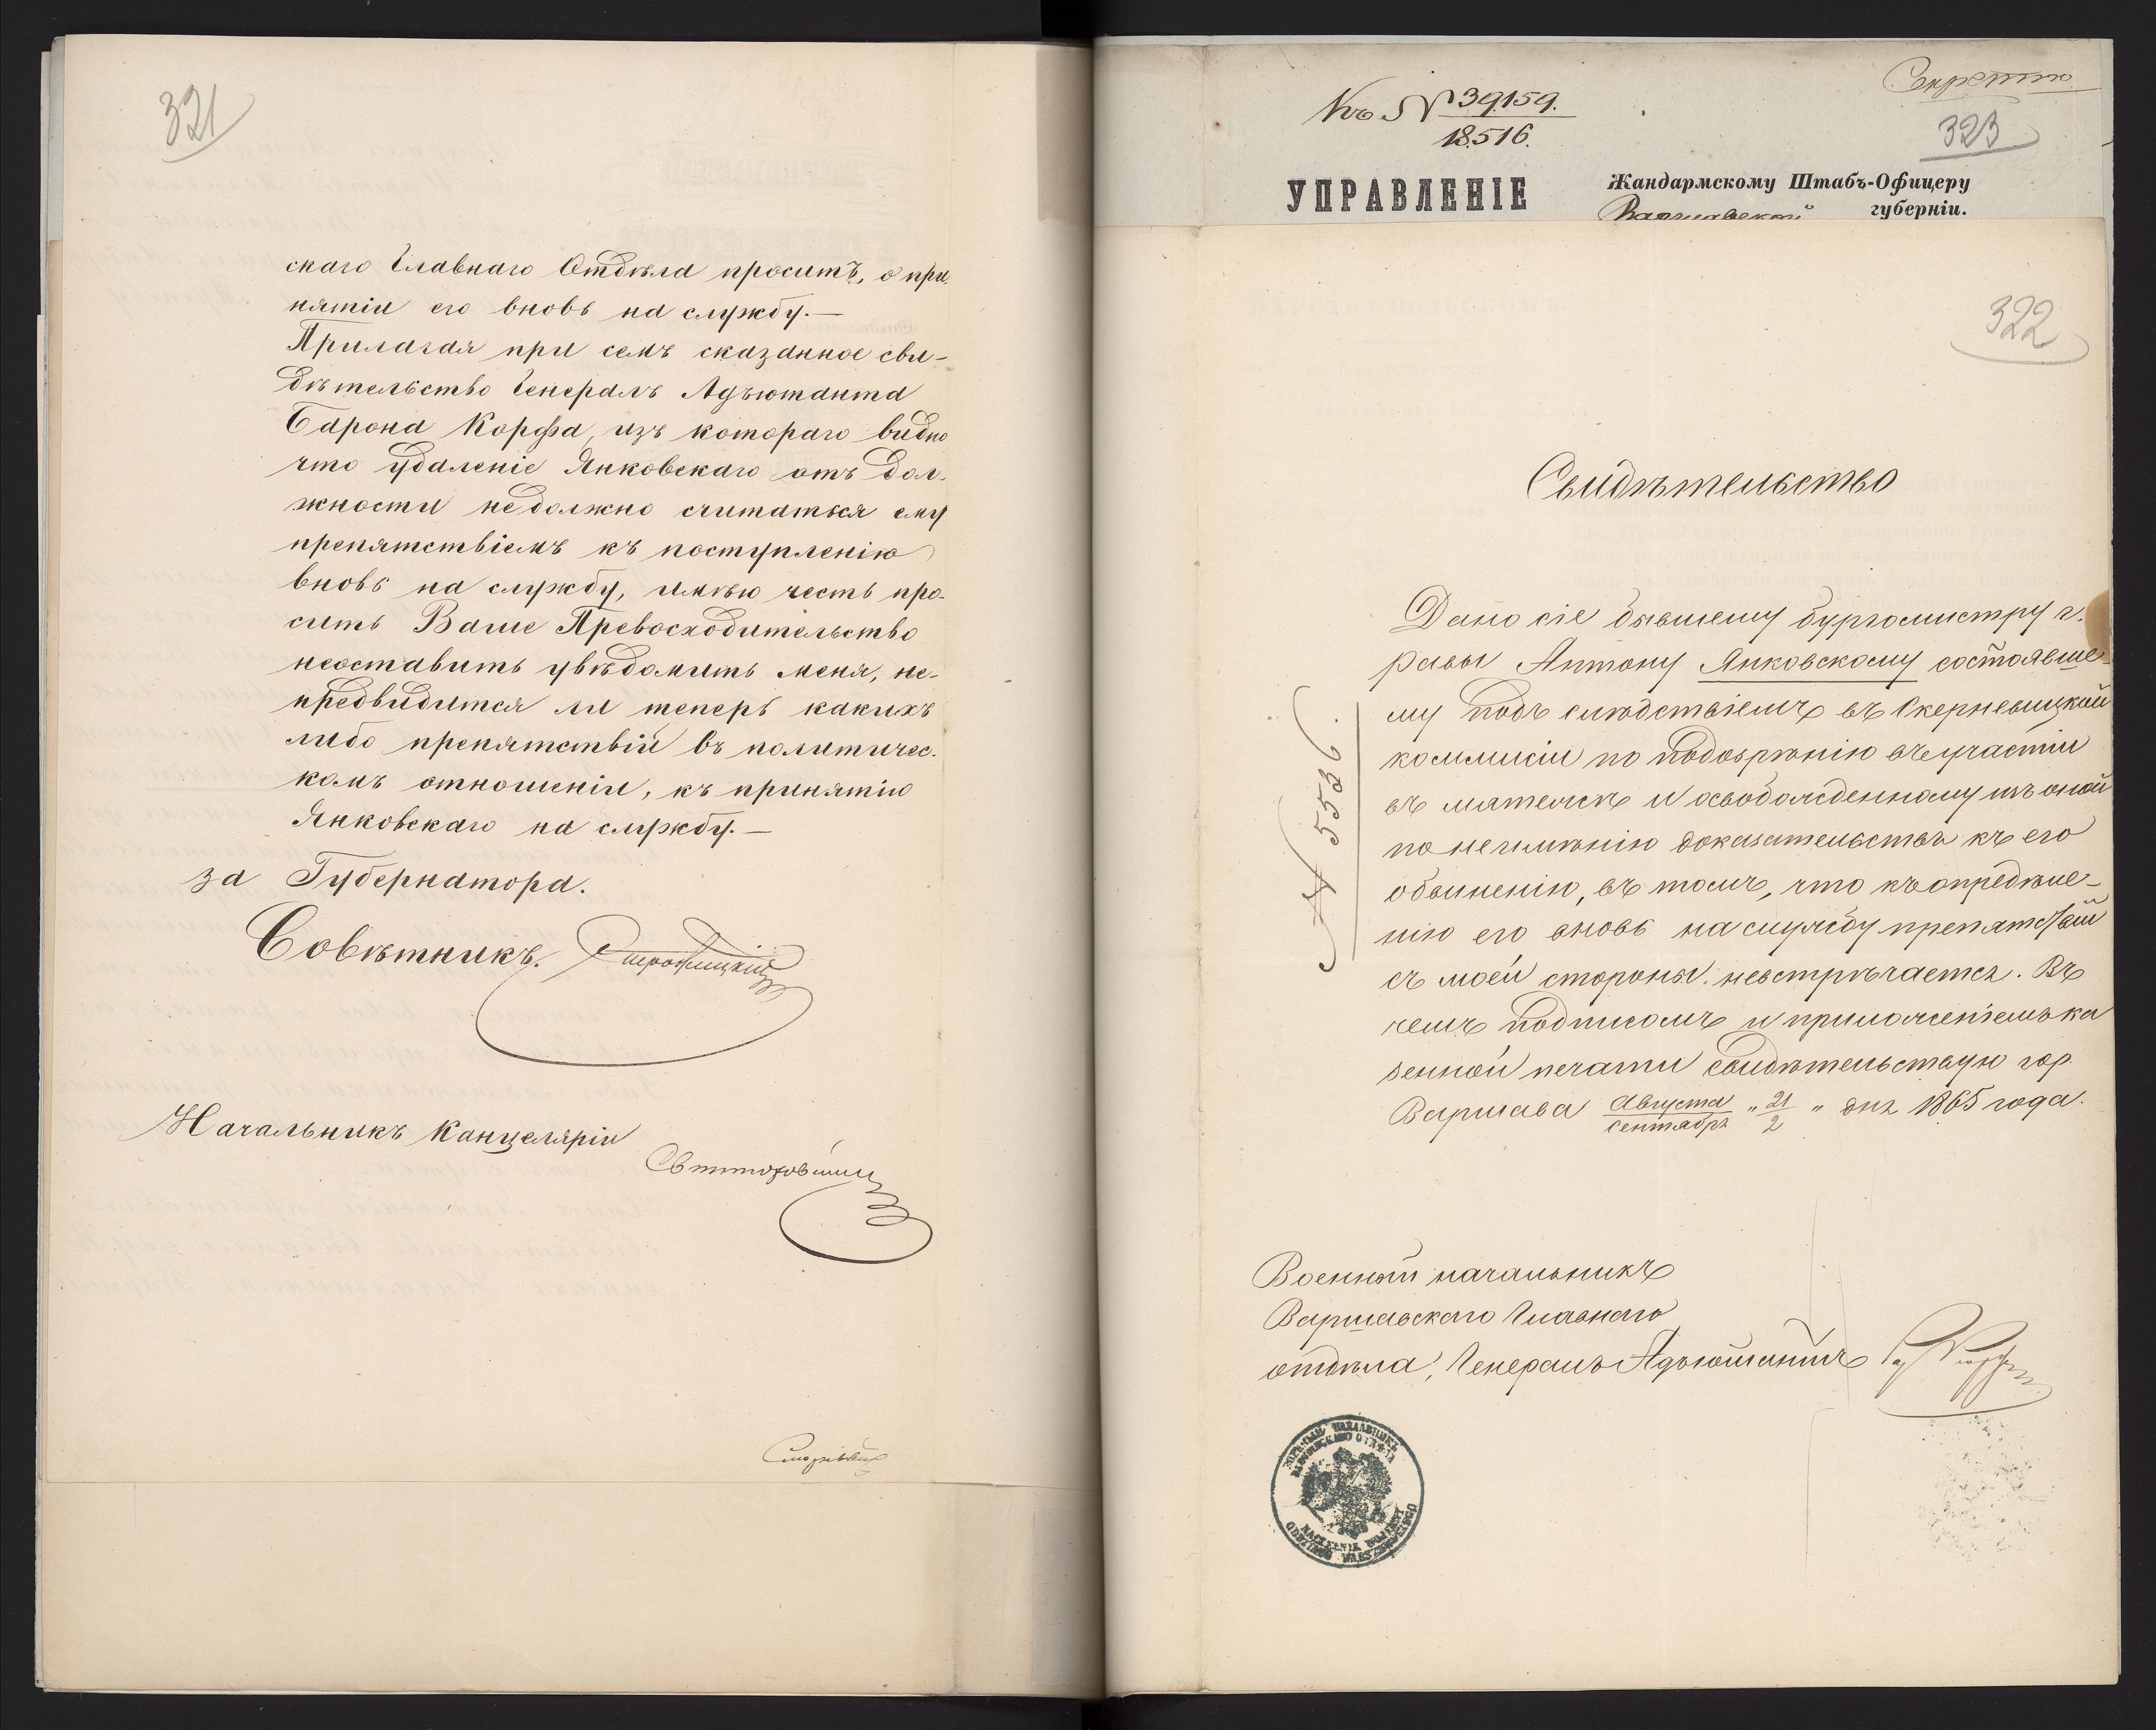 321
скаго Главнаго Отдѣла проситъ, о при-
нятіи его вновь на службу.—
Прилагая при семъ сказанное сви-
дѣтельство Генералъ Адъютанта
Барона Корфа, изъ котораго видно
что удаленіе Янковскаго отъ дол-
жности недолжно считаться ему
препятствіемъ къ поступленію
вновь на службу, имѣю честь про-
сить Ваше Превосходительство
неоставить увѣдомить меня, не-
предвидится ли теперь какихъ
либо препятствій въ политичес-
комъ отношеніи, къ принятію
Янковскаго на службу.—
за Губернатора.
Совѣтникъ.
Начальникъ Канцеляріи
Секретно
Къ № 39159.
18516.
323
УПРАВЛЕНІЕ
Жандармскому Штабъ-Офицеру
Варшавской губерніи.
322
Свидѣтельство
№ 5536.
Дано сіе бывшему бургомистру г.
Равы Антону Янковскому состоявше-
му подъ слѣдствіемъ въ Скерневицкой
коммисіи по подозрѣнію въ участіи
въ мятежѣ и освобожденному изъ оной
по неимѣнію доказательствъ къ его
обвиненію, въ томъ, что къ опредѣле-
нію его вновь на службу препятствій
съ моей стороны невстрѣчается. Въ
чемъ подписомъ и приложеніемъ ка
зенной печати свидѣтельствую гор.
Варшава Августа/Сентября „21/2„ дня 1865 года.
Военный начальникъ
Варшавскаго Главнаго
отдѣла, Генералъ Адъютантъ
ВОЕННЫЙ НАЧАЛЬНИКЪ
ВАРШАВСКАГО ОТДѢЛА
NACZELNIK WOJENNY
ODDZIAŁU WARSZAWSKIEGO